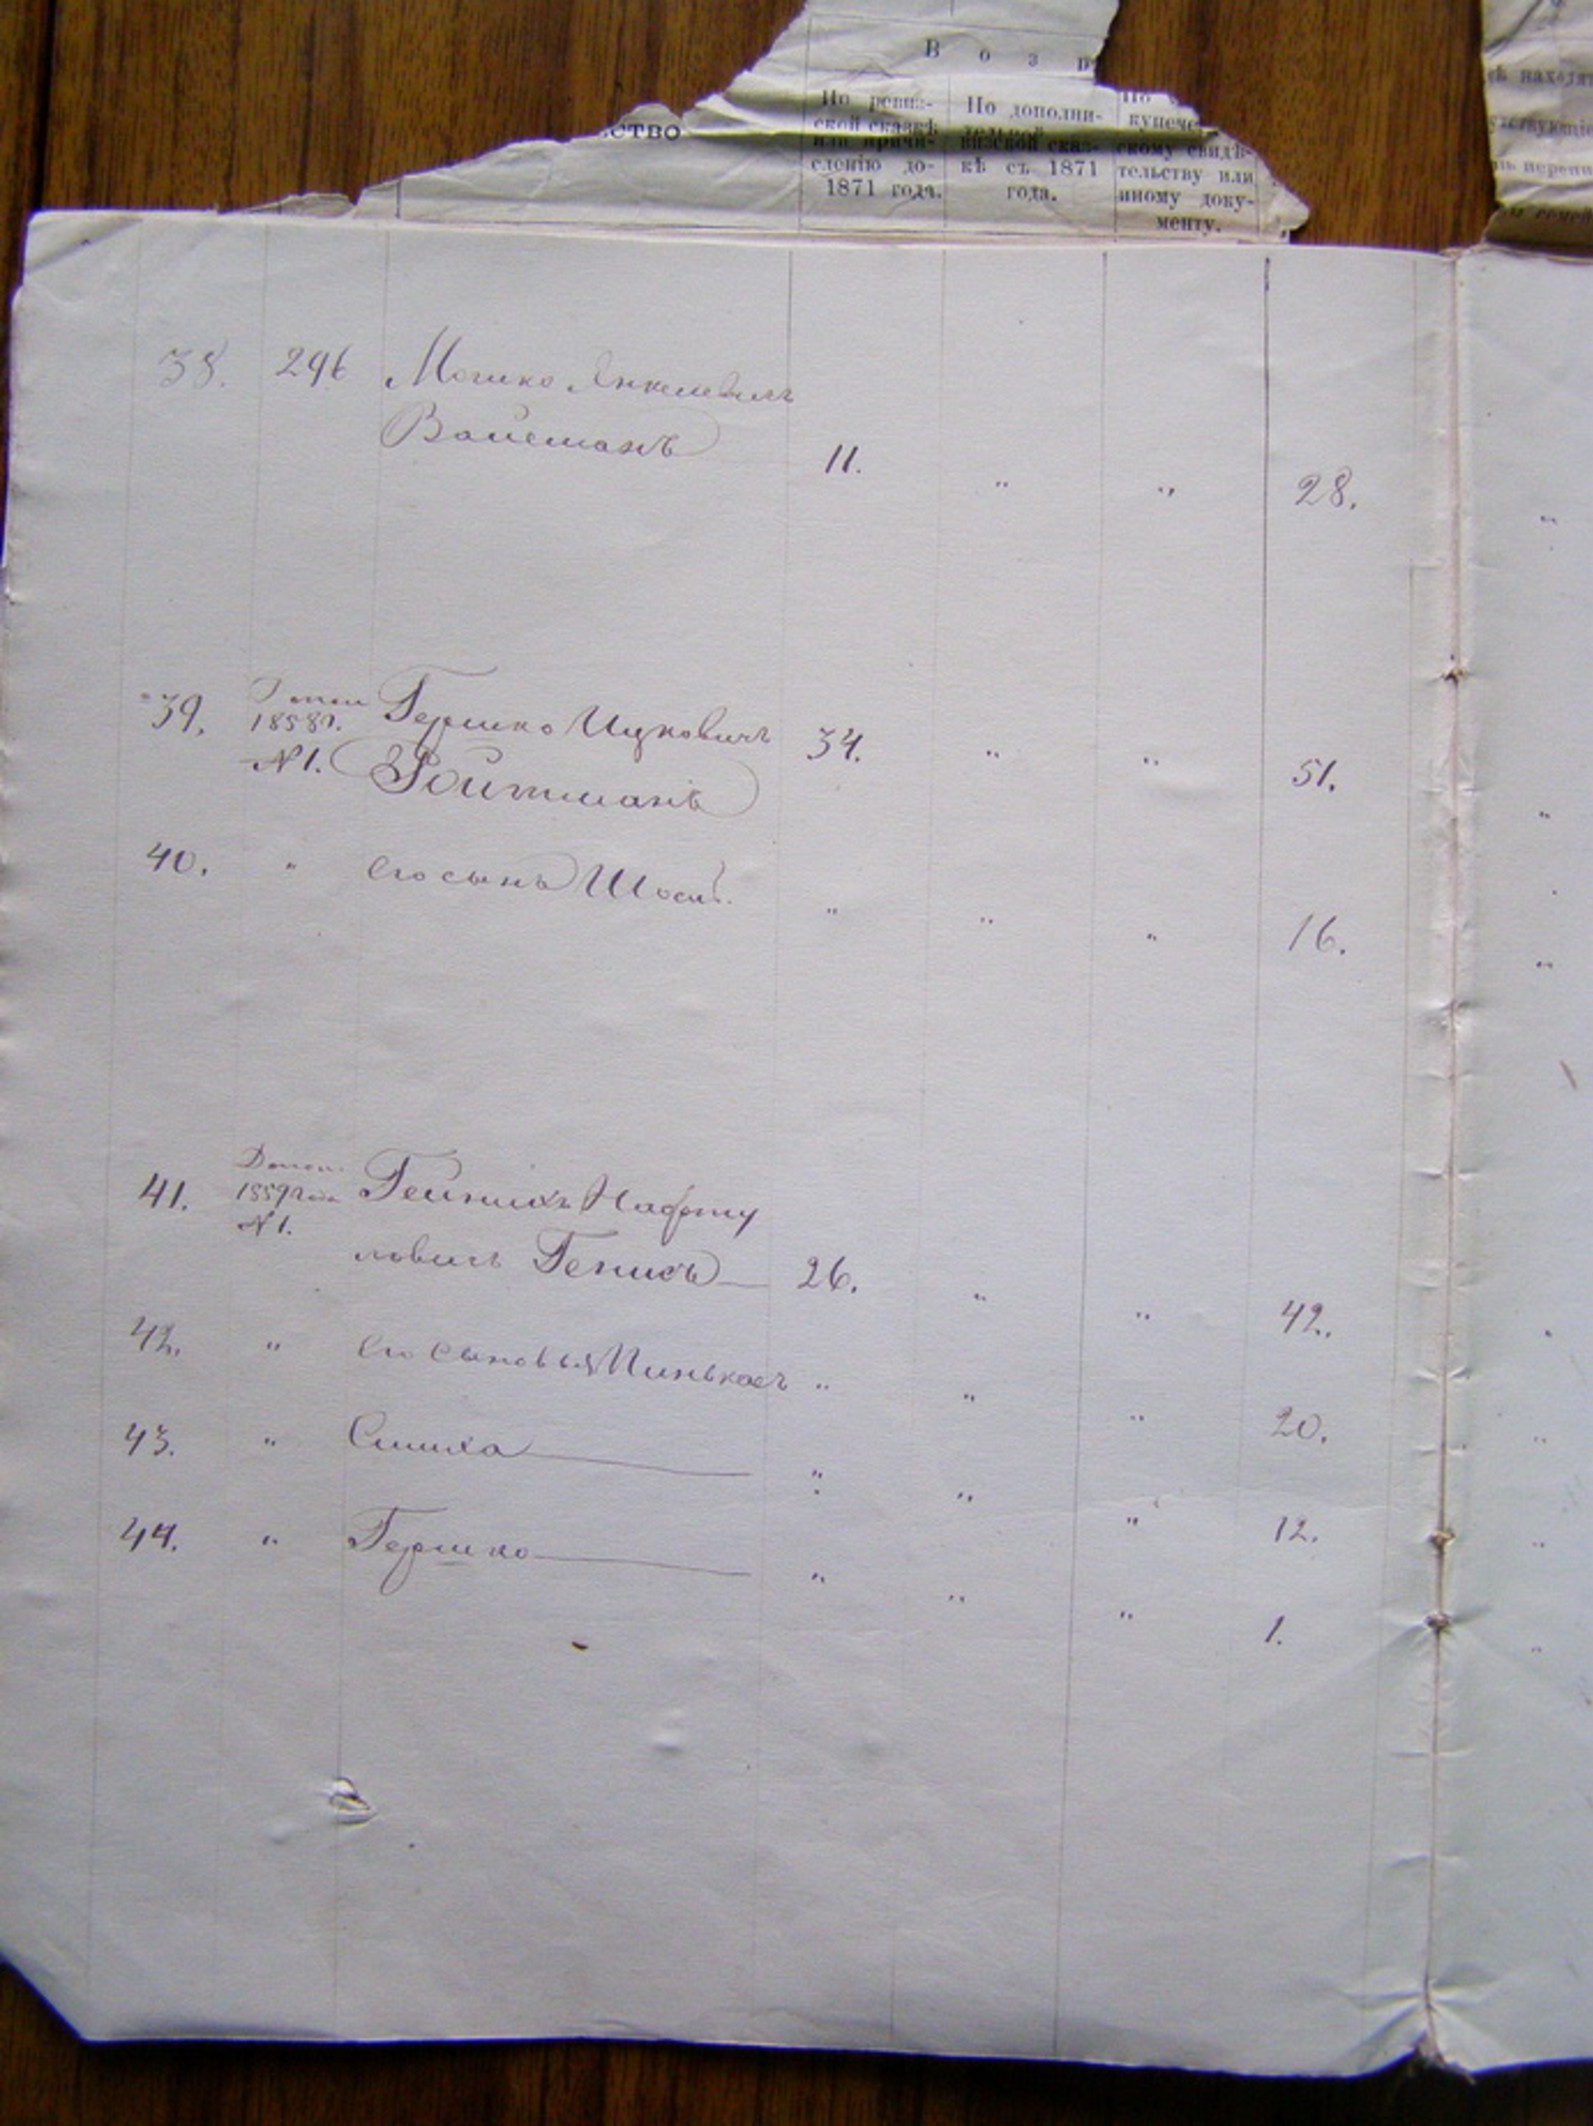 В о з р
ство
По ревиз-
ской сказкѣ
или причи-
сленію до-
1871 года.
По дополни-
тельной
визской сказ-
кѣ съ 1871
года.
По
купече-
скому свидѣ-
тельству или
иному доку-
менту.
38. 296 Мошко Янкелевичъ
Вайсманъ 11. " " 28.
39. Допол 1858 г. №1. Гершко Ицковичъ 34. " " 51.
Ройтманъ
40. " его сынъ Шоель. " " " 16.
41. Допол. 1859 года №1. Гейнихъ Нафту
ловичъ Генисъ 26. " " 42.
42. " его сыновья Пинькасъ " " " 20.
43. " Симха " " " 12.
44. " Гершко " " " 1.